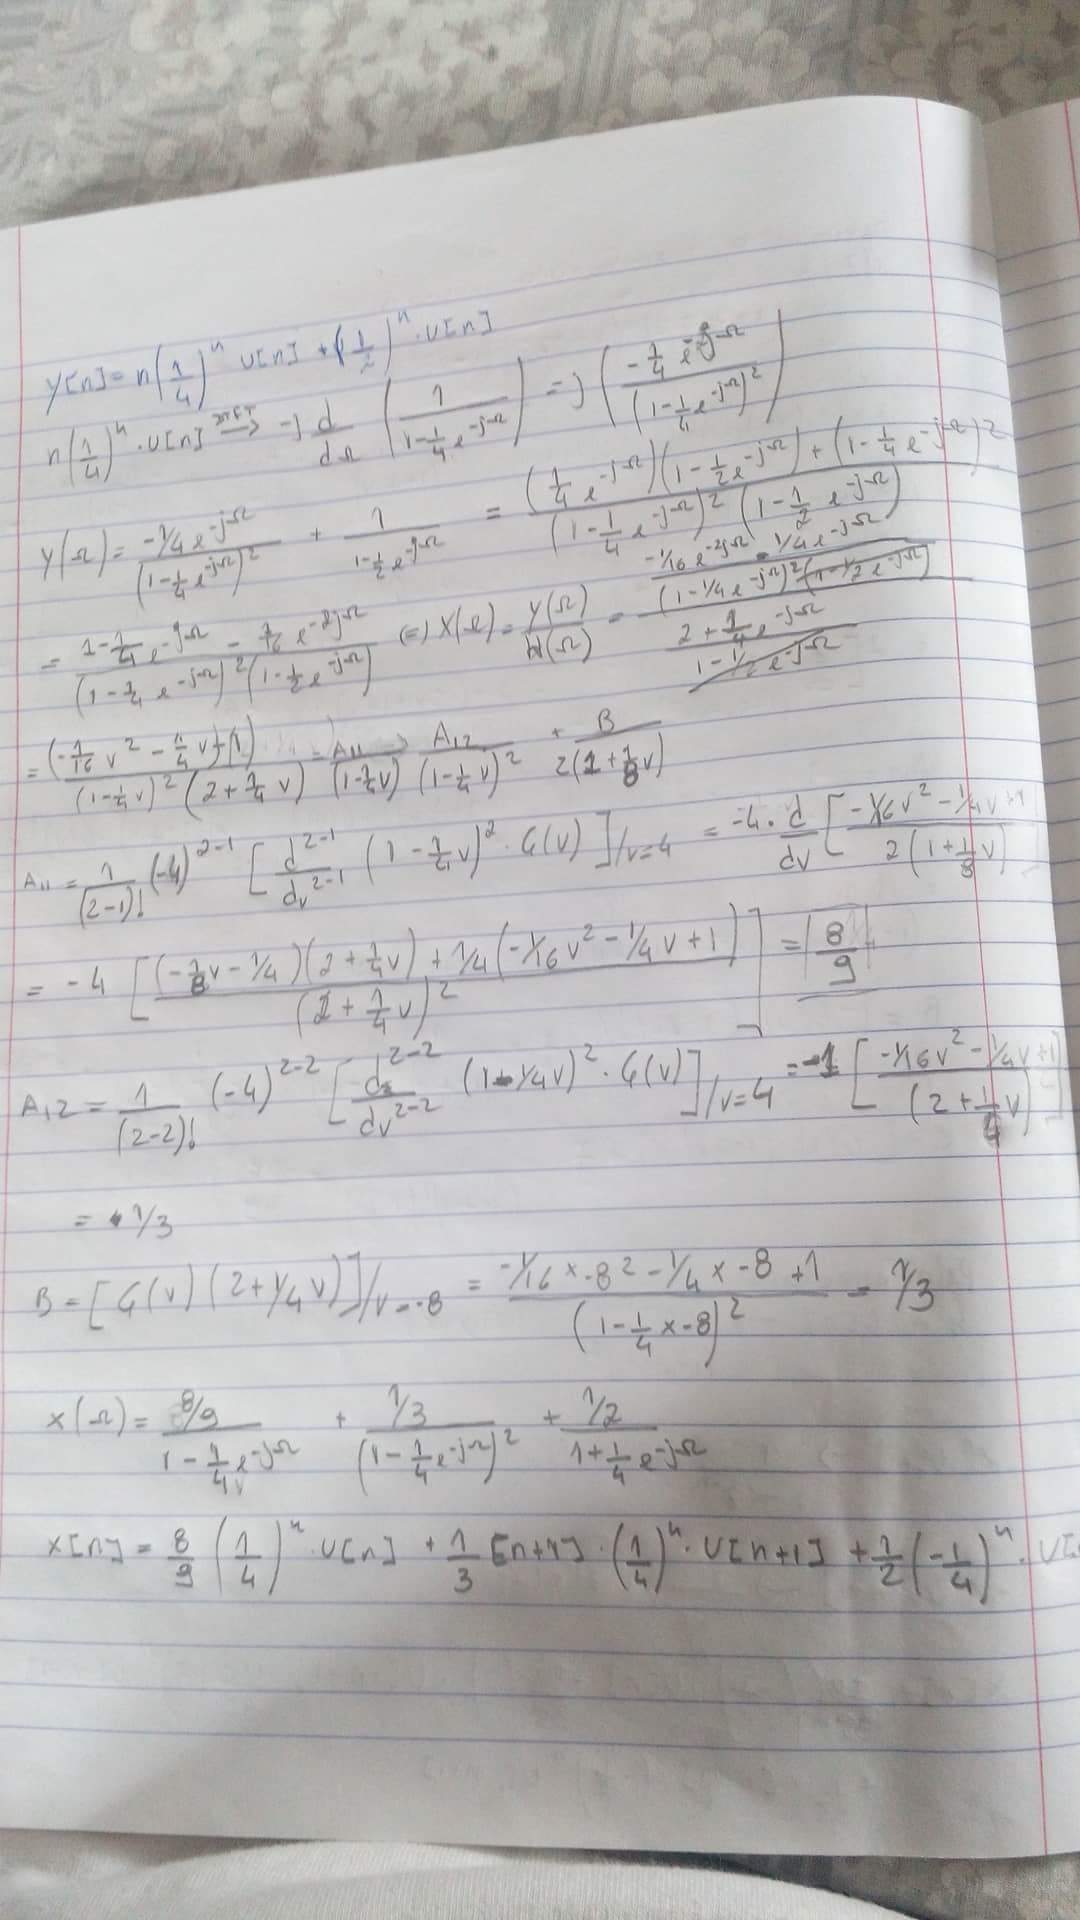 y[n] = n(1/4)^n u[n] + (1/2)^n · u[n]
n(1/4)^n · u[n] DTFT→ -j d/dΩ (1/(1-1/4 e^-jΩ)) = j((-1/4 e^-jΩ)/(1-1/4 e^-jΩ)^2)
Y(Ω) = (-1/4 e^-jΩ)/(1-1/4 e^-jΩ)^2 + 1/(1-1/2 e^-jΩ) = ((1/4 e^-jΩ)(1-1/2 e^-jΩ) + (1-1/4 e^-jΩ)^2)/((1-1/4 e^-jΩ)^2 (1-1/2 e^-jΩ))
= (1-1/4 e^-jΩ - 1/16 e^-2jΩ)/((1-1/4 e^-jΩ)^2 (1-1/2 e^-jΩ)) (=) X(Ω) = Y(Ω)/H(Ω) = ((-1/16 e^-2jΩ - 1/4 e^-jΩ)/((1-1/4 e^-jΩ)^2 (1-1/2 e^-jΩ)))/((2+1/4 e^-jΩ)/(1-1/2 e^-jΩ))
= (-1/16 v^2 - 1/4 v + 1)/((1-1/4 v)^2 (2+1/4 v)) = A11/(1-1/4 v) + A12/(1-1/4 v)^2 + B/(2(1+1/8 v))
A11 = 1/(2-1)! (-4)^2-1 [d^2-1/dv^2-1 (1-1/4 v)^2 · G(v)]/v=4 = -4 · d/dv [(-1/16 v^2 - 1/4 v + 1)/(2(1+1/8 v))
= -4 [((-1/8 v - 1/4)(2+1/4 v) + 1/4(-1/16 v^2 - 1/4 v + 1))/(2+1/4 v)^2] = 8/9
A12 = 1/(2-2)! (-4)^2-2 [d^2-2/dv^2-2 (1-1/4 v)^2 · G(v)]/v=4 = 1 [(-1/16 v^2 - 1/4 v + 1)/(2+1/4 v)]
= 1/3
B = [G(v) (2+1/4 v)]/v=-8 = (-1/16 x -8^2 - 1/4 x -8 + 1)/(1-1/4 x -8)^2 = 1/3
X(Ω) = (8/9)/(1-1/4 e^-jΩ) + (1/3)/(1-1/4 e^-jΩ)^2 + (1/2)/(1+1/4 e^-jΩ)
x[n] = 8/9 (1/4)^n · u[n] + 1/3 [n+1] · (1/4)^n · u[n+1] + 1/2 (-1/4)^n · u[